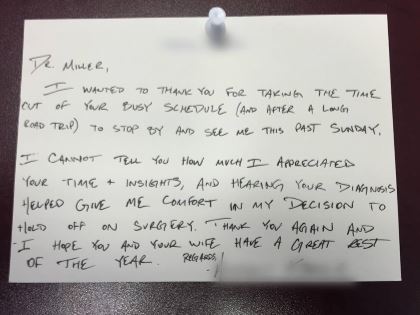 DR. MILLER,
I WANTED TO THANK YOU FOR TAKING THE TIME
OUT OF YOUR BUSY SCHEDULE (AND AFTER A LONG
ROAD TRIP) TO STOP BY AND SEE ME THIS PAST SUNDAY.
I CANNOT TELL YOU HOW MUCH I APPRECIATED
YOUR TIME + INSIGHTS, AND HEARING YOUR DIAGNOSIS
HELPED GIVE ME COMFORT IN MY DECISION TO
HOLD OFF ON SURGERY. THANK YOU AGAIN AND
I HOPE YOU AND YOUR WIFE HAVE A GREAT REST
OF THE YEAR. REGARDS,